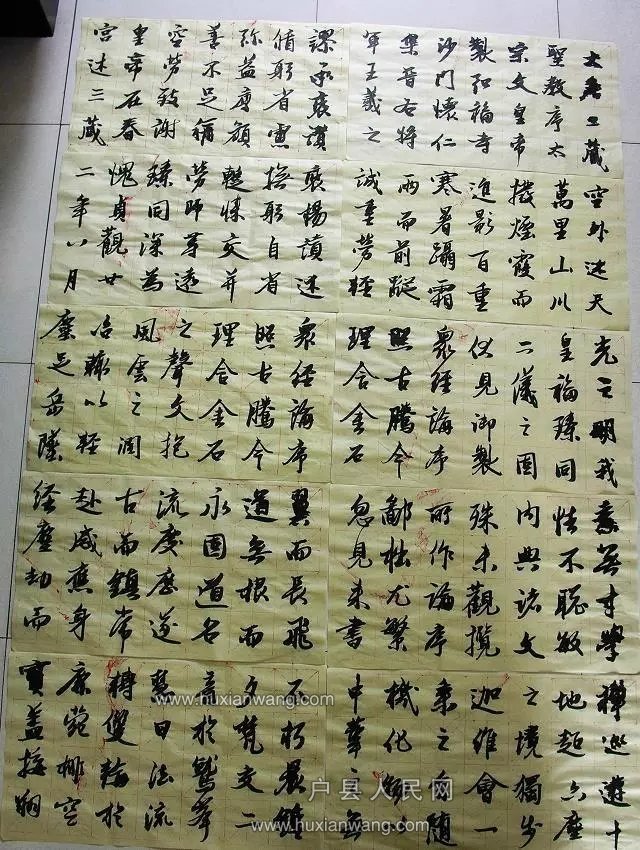 大唐三藏
聖教序太
宗文皇帝
製弘福寺
沙門懷仁
集晉右將
軍王羲之
謬承褒讚
循躬省慮
彌益厚顏
善不足稱
空勞致謝
皇帝在春
宮述三藏
空外迷天
萬里山川
撥煙霞而
進影百重
寒暑躡霜
雨而前蹤
誠重勞輕
褒揚讚述
撫躬自省
慙悚交并
勞師等遠
臻同深為
愧貞觀廿
二年八月
光之明我
皇福臻同
二儀之固
伏見御製
衆經論序
照古騰今
理含金石
衆經論序
照古騰今
理含金石
之聲文抱
風雲之潤
治輒以輕
塵足岳墜
素無才學
性不聰敏
内典諸文
殊未觀攬
所作論序
鄙拙尤繁
忽見来書
翼而長飛
道無根而
永固道名
流慶歷遂
古而鎮常
赴感應身
經塵劫而
禪巡遊十
地超六塵
之境獨步
迦維會一
乘之旨隨
機化物
中華之無
不朽晨鐘
夕梵交二
音於鷲峯
慧日法流
轉雙輪於
鹿菀排空
寶盖接翔
www.huxianwang.com
户县人民网
www.huxianwang.com
户县人民网
www.huxianwang.com